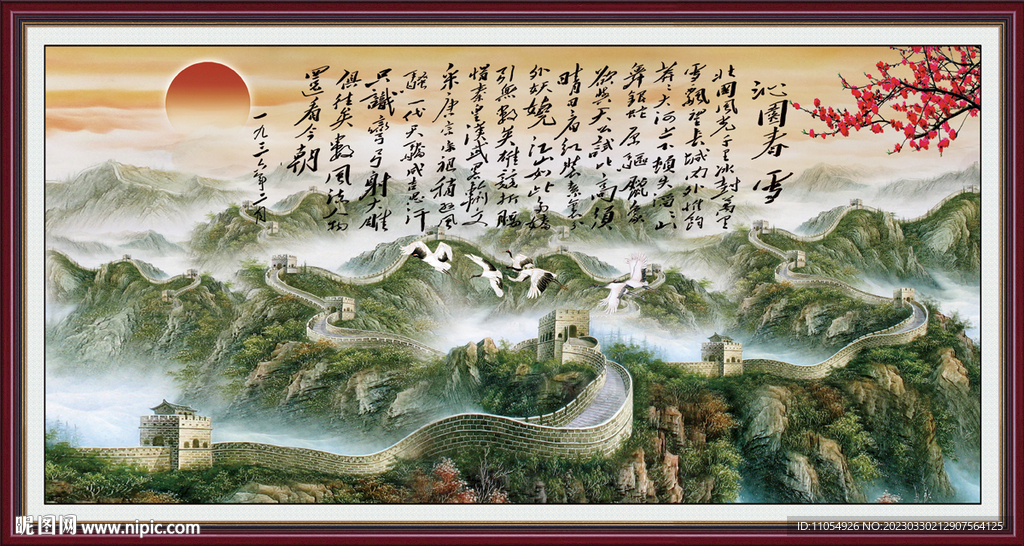 沁園春 雪
北國風光千里冰封萬里
雪飄望長城内外惟餘
莽〻大河上下頓失滔〻山
舞銀蛇原馳臘象
欲與天公試比高須
晴日看紅裝素裹分
外妖嬈 江山如此多嬌
引無數英雄競折腰
惜秦皇漢武略輸文
采唐宗宋祖稍遜風
騷一代天驕成吉思汗
只識彎弓射大雕
俱往矣數風流人物
還看今朝
一九三六年二月
昵图网 www.nipic.com
ID:11054926 NO:20230330212907564125